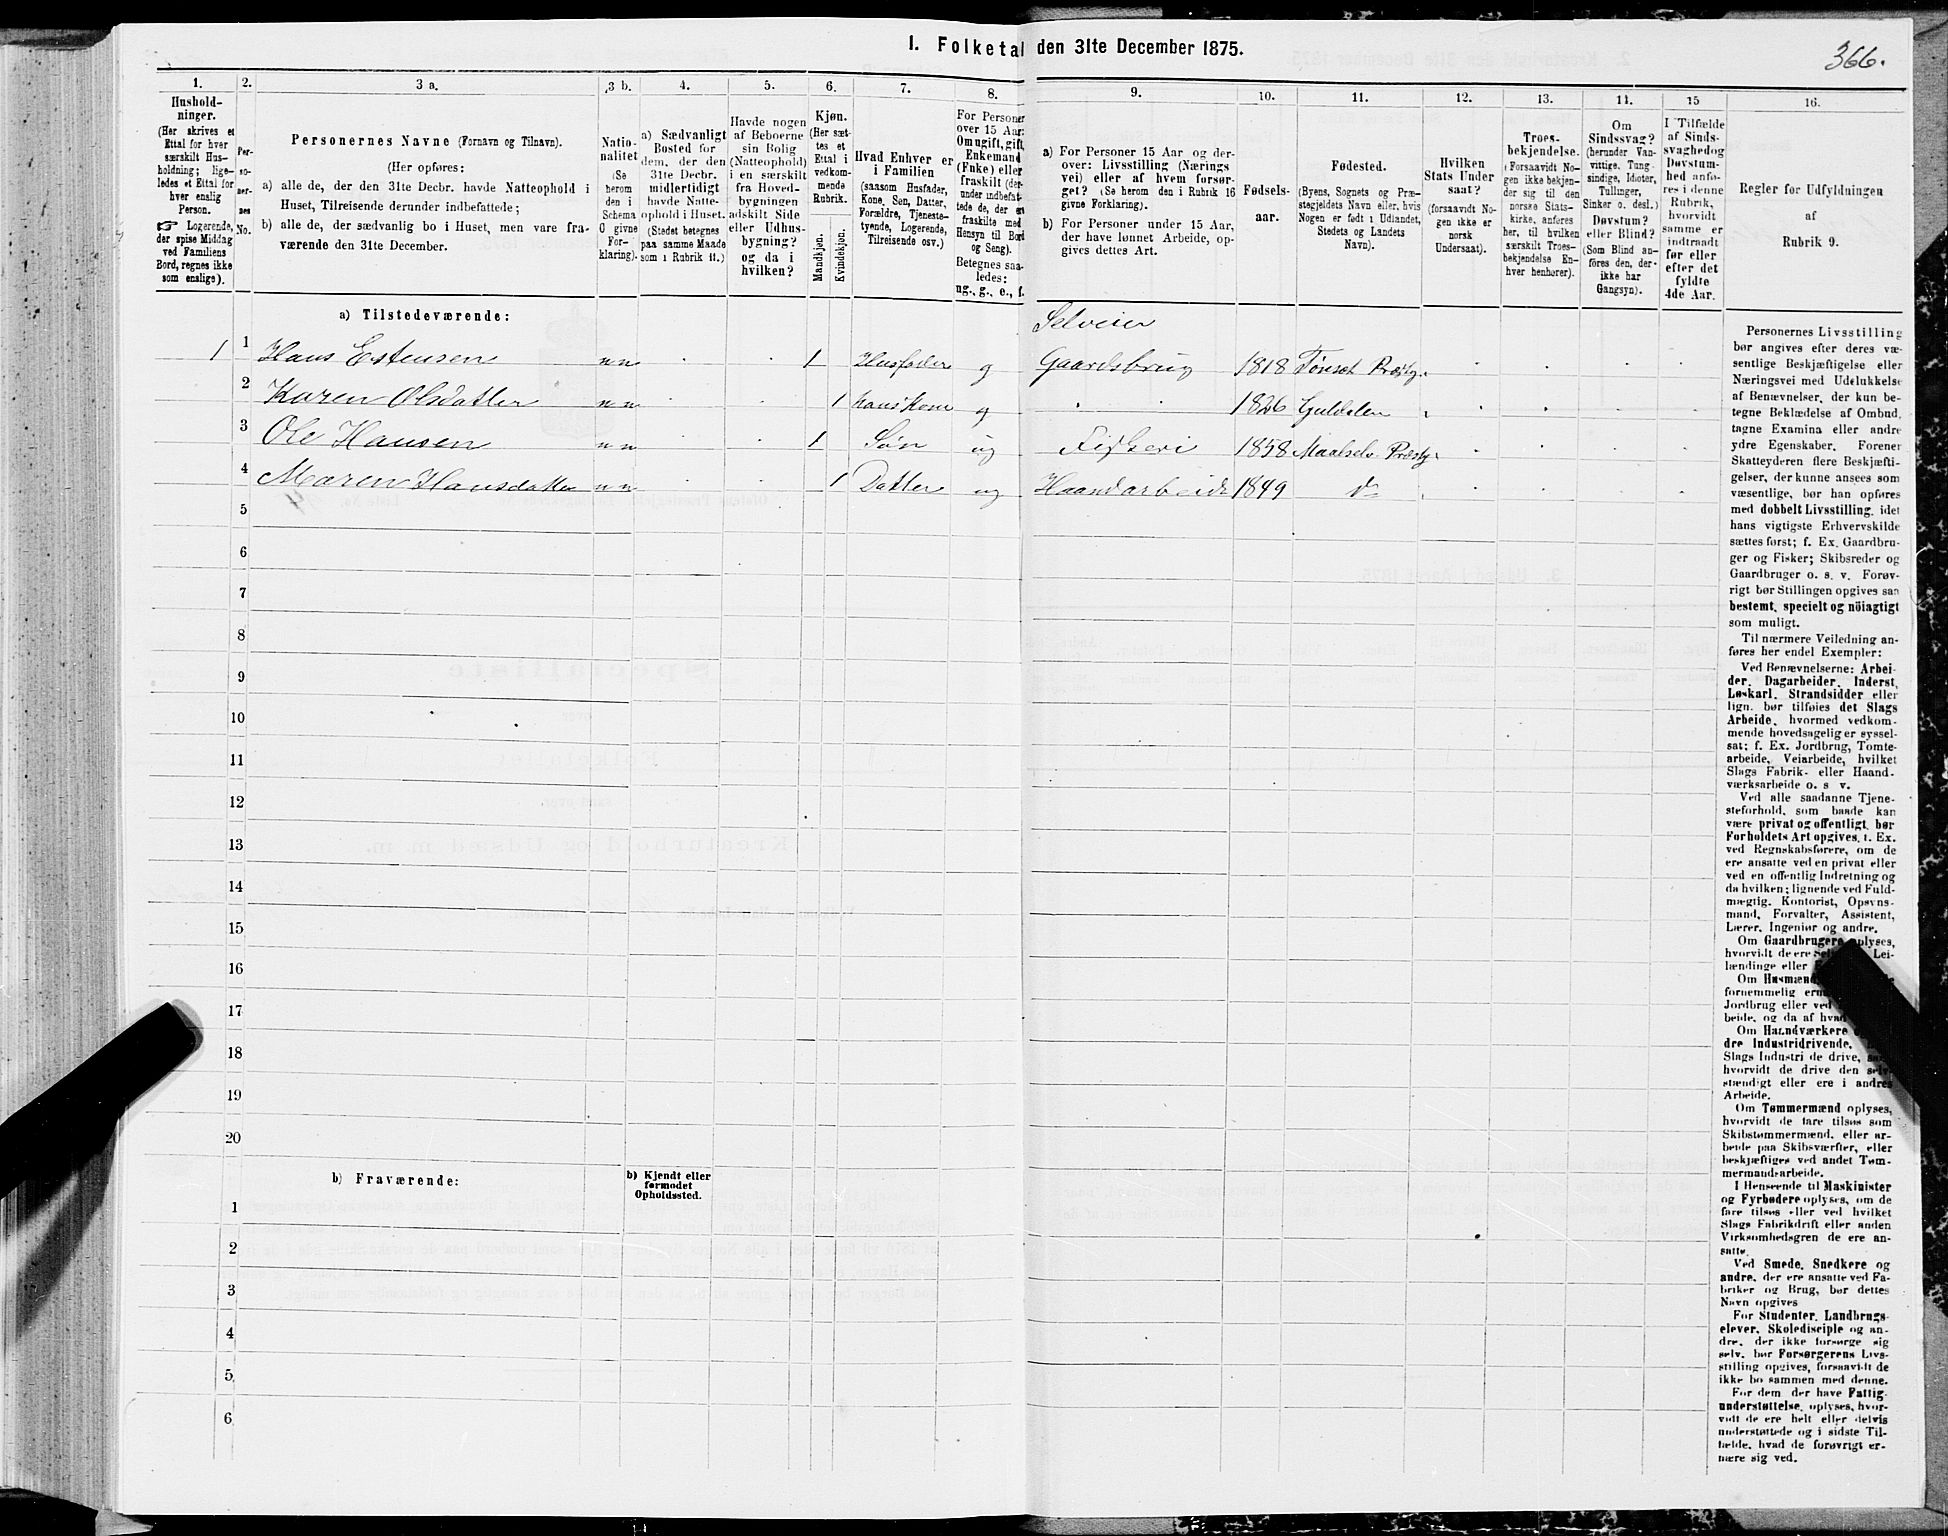 I. Folketal den 31te December 1875.
366.
1. 2. 3 a. 3 b. 4. 5. 6. 7. 8. 9. 10. 11. 12. 13. 14. 15 16.
Hushold-
ninger.
(Her skrives et
Ettal for hver
særskilt Hus-
holdning; lige-
ledes et Ettal for
hver enslig
Person.
☞ Logerende,
der spise Middag
ved Familiens
Bord, regnes ikke
som enslige).
Per-
so-
ner-
nes
No.
Personernes Navne (Fornavn og Tilnavn).
(Her opføres:
a) alle de, der den 31te Decbr. havde Natteophold i
Huset, Tilreisende derunder indbefattede;
b) alle de, der sædvanlig bo i Huset, men vare fra-
værende den 31te December.
Natio-
nalitet
(Se
herom
den i
Schema
O givne
For-
klaring).
a) Sædvanligt
Bosted for
dem, der den
31te Decbr.
midlertidigt
havde Natte-
ophold i Huset.
(Stedet betegnes
paa samme Maade
som i Rubrik 11.)
Havde nogen
af Beboerne
sin Bolig
(Natteophold)
i en særskilt
fra Hoved-
bygningen
adskilt Side
eller Udhus-
bygning?
og da i
hvilken?
Kjøn.
(Her sæt-
tes et
Ettal i
vedkom-
mende
Rubrik.
Mandkjøn.
Kvindekjøn.
Hvad Enhver er
i Familien
(saasom Husfader,
Kone, Søn, Datter,
Forældre, Tjeneste-
tyende, Logerende,
Tilreisende osv.)
For Personer
over 15 Aar:
Om ugift, gift,
Enkemand
(Enke) eller
fraskilt (der-
under indbefat-
tede de, der ere
fraskilte med
Hensyn til Bord
og Seng).
Betegnes saa-
ledes:
ug., g., e., f.
a) For Personer 15 Aar og der-
over: Livsstilling (Nærings
vei) eller af hvem forsør-
get? (Se herom den i Rubrik 16
givne Forklaring).
b) For Personer under 15 Aar,
der have lønnet Arbeide, op-
gives dettes Art.
Fødsels-
aar.
Fødested.
(Byens, Sognets og Præ-
stegjeldets Navn eller, hvis
Nogen er født i Udlandet,
Stedets og Landets
Navn).
Hvilken
Stats Under
saat?
(forsaavidt No-
gen ikke er
norsk
Undersaat).
Troes-
bekjendelse.
(Forsaavidt No-
gen ikke bekjen-
der sig til den
norske Stats-
kirke, anføres
her, til hvilken
særskilt Troes-
bekjendelse En-
hver henhører).
Om
Sindssvag?
(herunder Van-
vittige, Tung-
sindige, Idioter,
Tullinger,
Sinker o. desl.)
Døvstum?
eller Blind?
(Som Blind an-
føres den, der-
ikke har
Gangsyn).
I Tilfælde
af Sinds-
svaghedog
Døvstum-
hed anfø-
res i denne
Rubrik,
hvorvidt
samme er
indtraadt
før eller
efter det
fyldte
4de Aar.
Regler for Udfyldningen
af
Rubrik 9.
a) Tilstedeværende:
Selveier
1 1 Hans Estensen n n 1 Husfader g Gaardsbrug 1818 Tønset Præstg.
2 Karen Olsdatter n n 1 hans Kone g 1826 Guldalen
3 Ole Hansen n n 1 Søn ug Fiskeri 1858 Maalselv Præstg.
4 Maren Hansdatter n n 1 Datter ug Haandarbeide 1849 do
5
6
7
8
9
10
11
12
13
14
15
16
17
18
19
20
b) Fraværende:
b) Kjendt eller
formodet
Opholdssted.
1
2
3
4
5
6
Personernes Livsstilling
bør angives efter deres væ-
sentlige Beskjæftigelse eller
Næringsvei med Udelukkelse
af Benævnelser, der kun be-
tegne Beklædelse af Ombud,
tagne Examina eller andre
ydre Egenskaber. Forener
Skatteyderen flere Beskjæfti-
gelser, der kunne ansees som
væsentlige, bør han opføres
med dobbelt Livsstilling, idet
hans vigtigste Erhvervskilde
sættes først; f. Ex. Gaardbru-
ger og Fisker; Skibsreder og
Gaardbruger o. s. v. Forøv-
rigt bør Stillingen opgives saa
bestemt, specielt og nöiagtigt
som muligt.
Til nærmere Veiledning an-
føres her endel Exempler:
Ved Benævnelserne: Arbei-
der, Dagarbeider, Inderst,
Løskarl, Strandsidder eller
lign. bør tilføies det Slags
Arbeide, hvormed vedkom-
mende hovedsagelig er syssel-
sat; f. Ex. Jordbrug, Tomte-
arbeide, Veiarbeide, hvilket
Slags Fabrik- eller Haand-
værksarbeide o. s v.
Ved alle saadanne Tjene-
steforhold, som baade kan
være privat og offentligt, bør
Forholdets Art opgives, t. Ex.
ved Regnskabsførere, om de
ere ansatte ved en privat eller
ved en offentlig Indretning og
da hvilken; lignende ved Fuld-
mægtig, Kontorist, Opsyns-
mand, Forvalter, Assistent,
Lærer, Ingeniør og andre.
Om Gaardbrugere oplyses,
hvorvidt de ere Lei-
lændinge eller
Om Husmænd
fornemmelig
Jordbrug eller ved
beide, og da af
Om Haandværkere
dre Industridrivende,
Slags Industri de drive,
hvorvidt de drive den selv-
stændigt eller ere i andres
Arbeide.
Om Tømmermænd oplyses,
hvorvidt de fare tilsøs som
Skibstømmermænd, eller ar-
beide paa Skibsværfter, eller
beskjæftiges ved andet Tøm-
mermandsarbeide.
I Henseende til Maskinister
og Fyrbødere oplyses, om de
fare tilsøs eller ved hvilket
Slags Fabrikdrift eller anden
Virksomhedsgren de ere an-
satte.
Ved Smede, Snedkere og
andre, der ere ansatte ved Fa-
briker og Brug, bør dettes
Navn opgives
For Studenter, Landbrugs-
elever, Skoledisciple og an-
dre, der ikke forsørge sig
selv, bør Forsørgerens Livs-
stilling opgives, forsaavidt de
ikke bo sammen med denne.
For dem, der have Fattig-
understøttelse, oplyses, hvor-
vidt de ere helt eller delvis
understøttede og i sidste Til-
fælde, hvad de forøvrigt er-
nære sig ved.